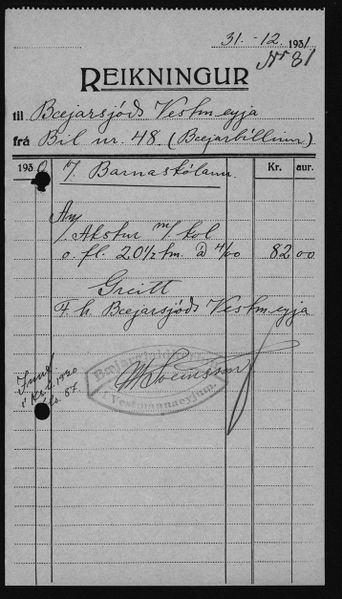 31.-12. 1931
Nr 81
REIKNINGUR
til Bæjarsjóðs Vestm.eyja
frá Bíl nr. 48 (Bæjarbíllinn)
1930 Kr. aur.
1/. Barnaskólann.
Akstur m/. kol
o. fl. 20 1/2 tm. á 4/00 82 00
Greitt
F. h. Bæjarsjóðs Vestm.eyja
Vestmannaeyjum